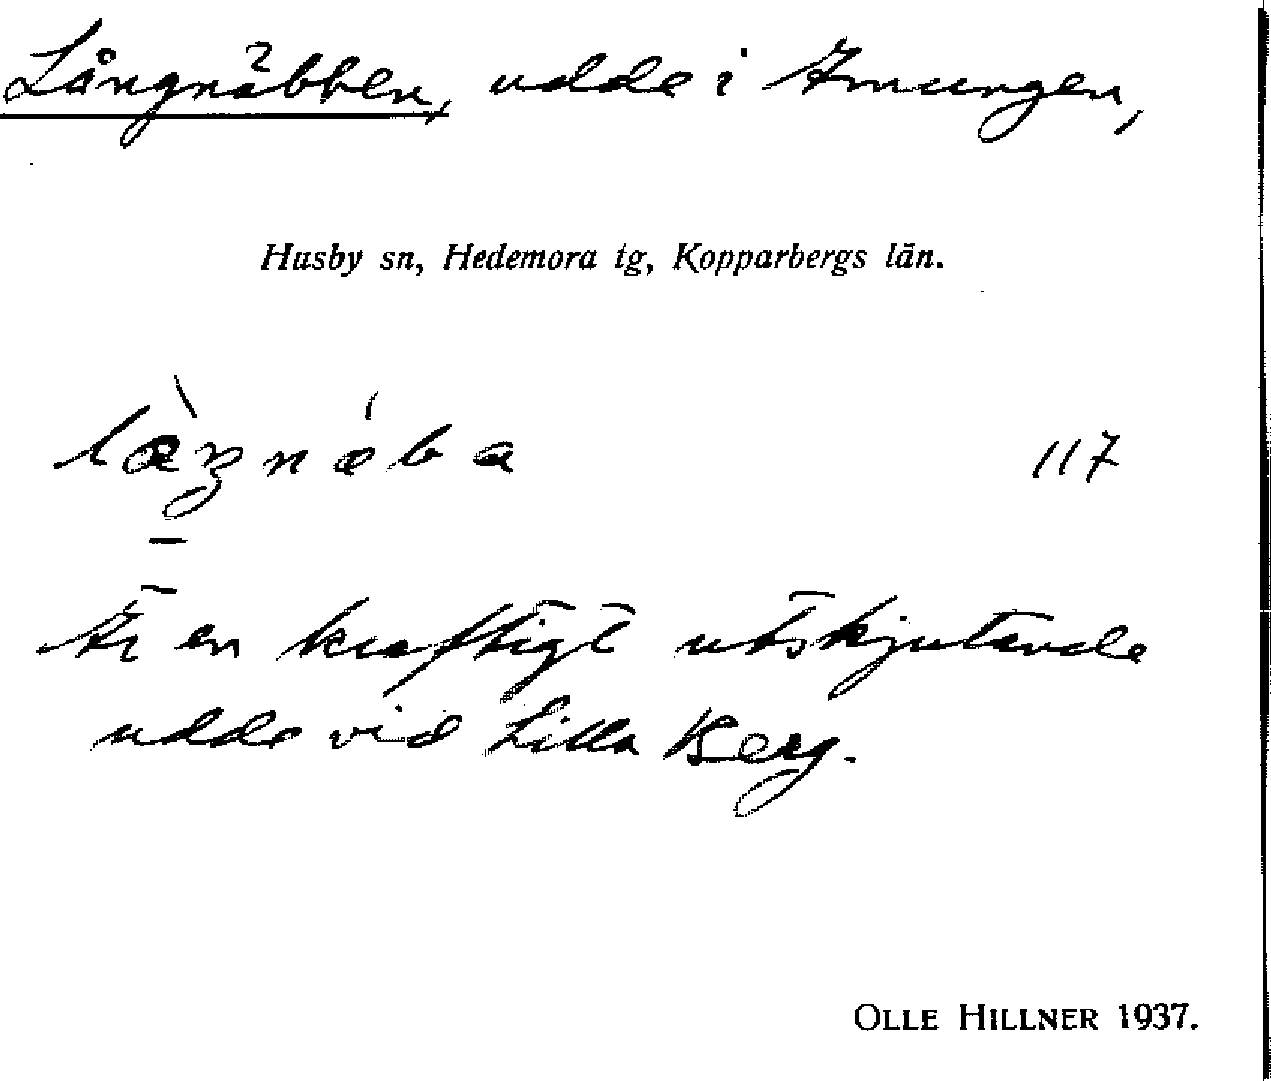 Långnäbben, udde i Amungen,
Husby sn, Hedemora tg, Kopparbergs län.
læŋnæba 117
Är en kraftigt utskjutande
udde vid Lilla Berg.
OLLE HILLNER 1937.